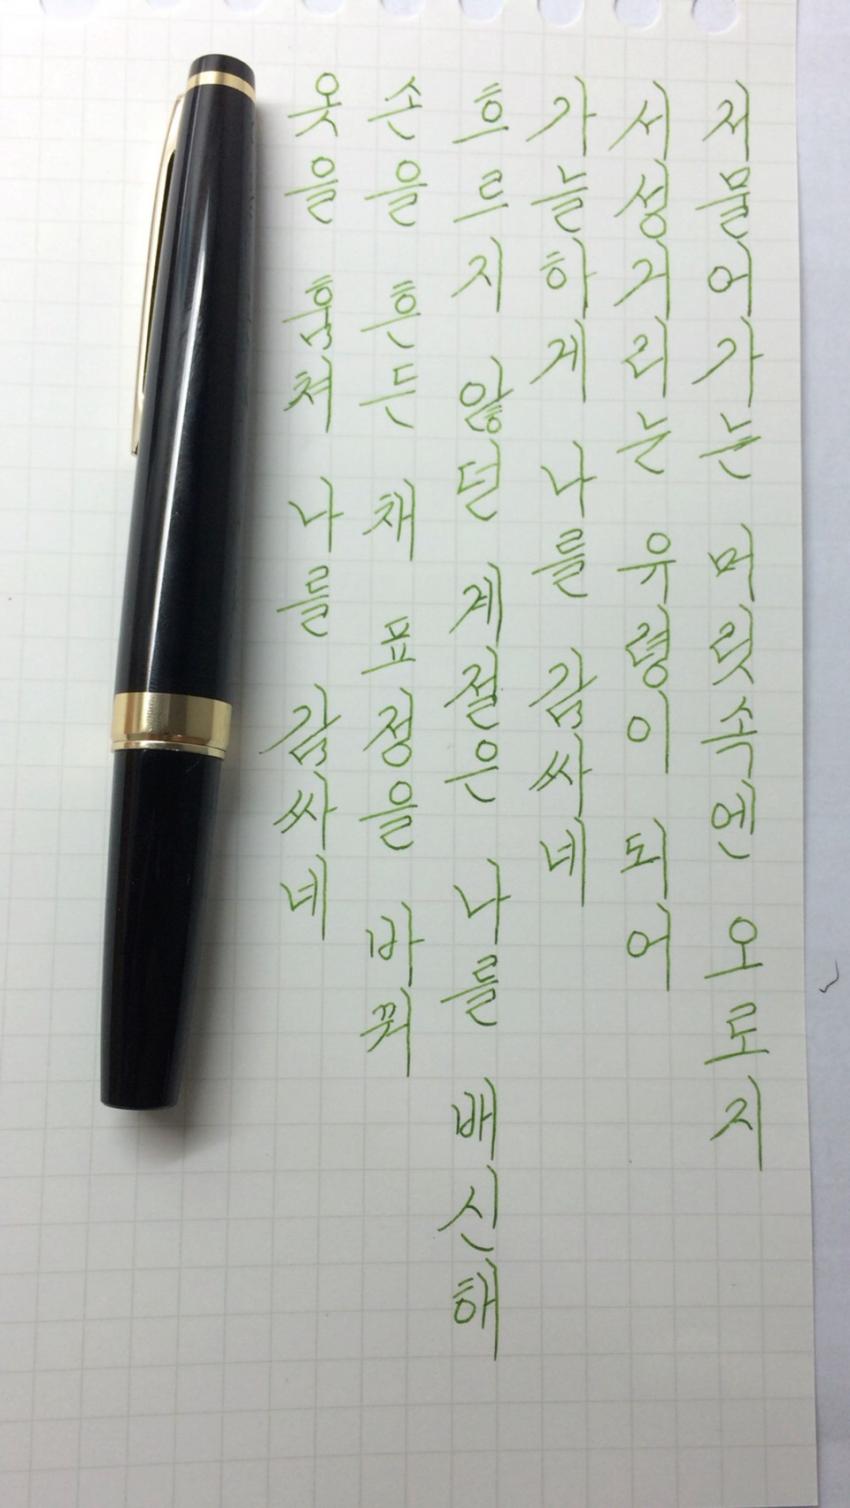 저물어가는 머릿속엔 오로지
서성거리는 유령이 되어
가늘하게 나를 감싸네
흐르지 않던 계절은 나를 배신해
손을 흔든 채 표정을 바꿔
옷을 훔쳐 나를 감싸네